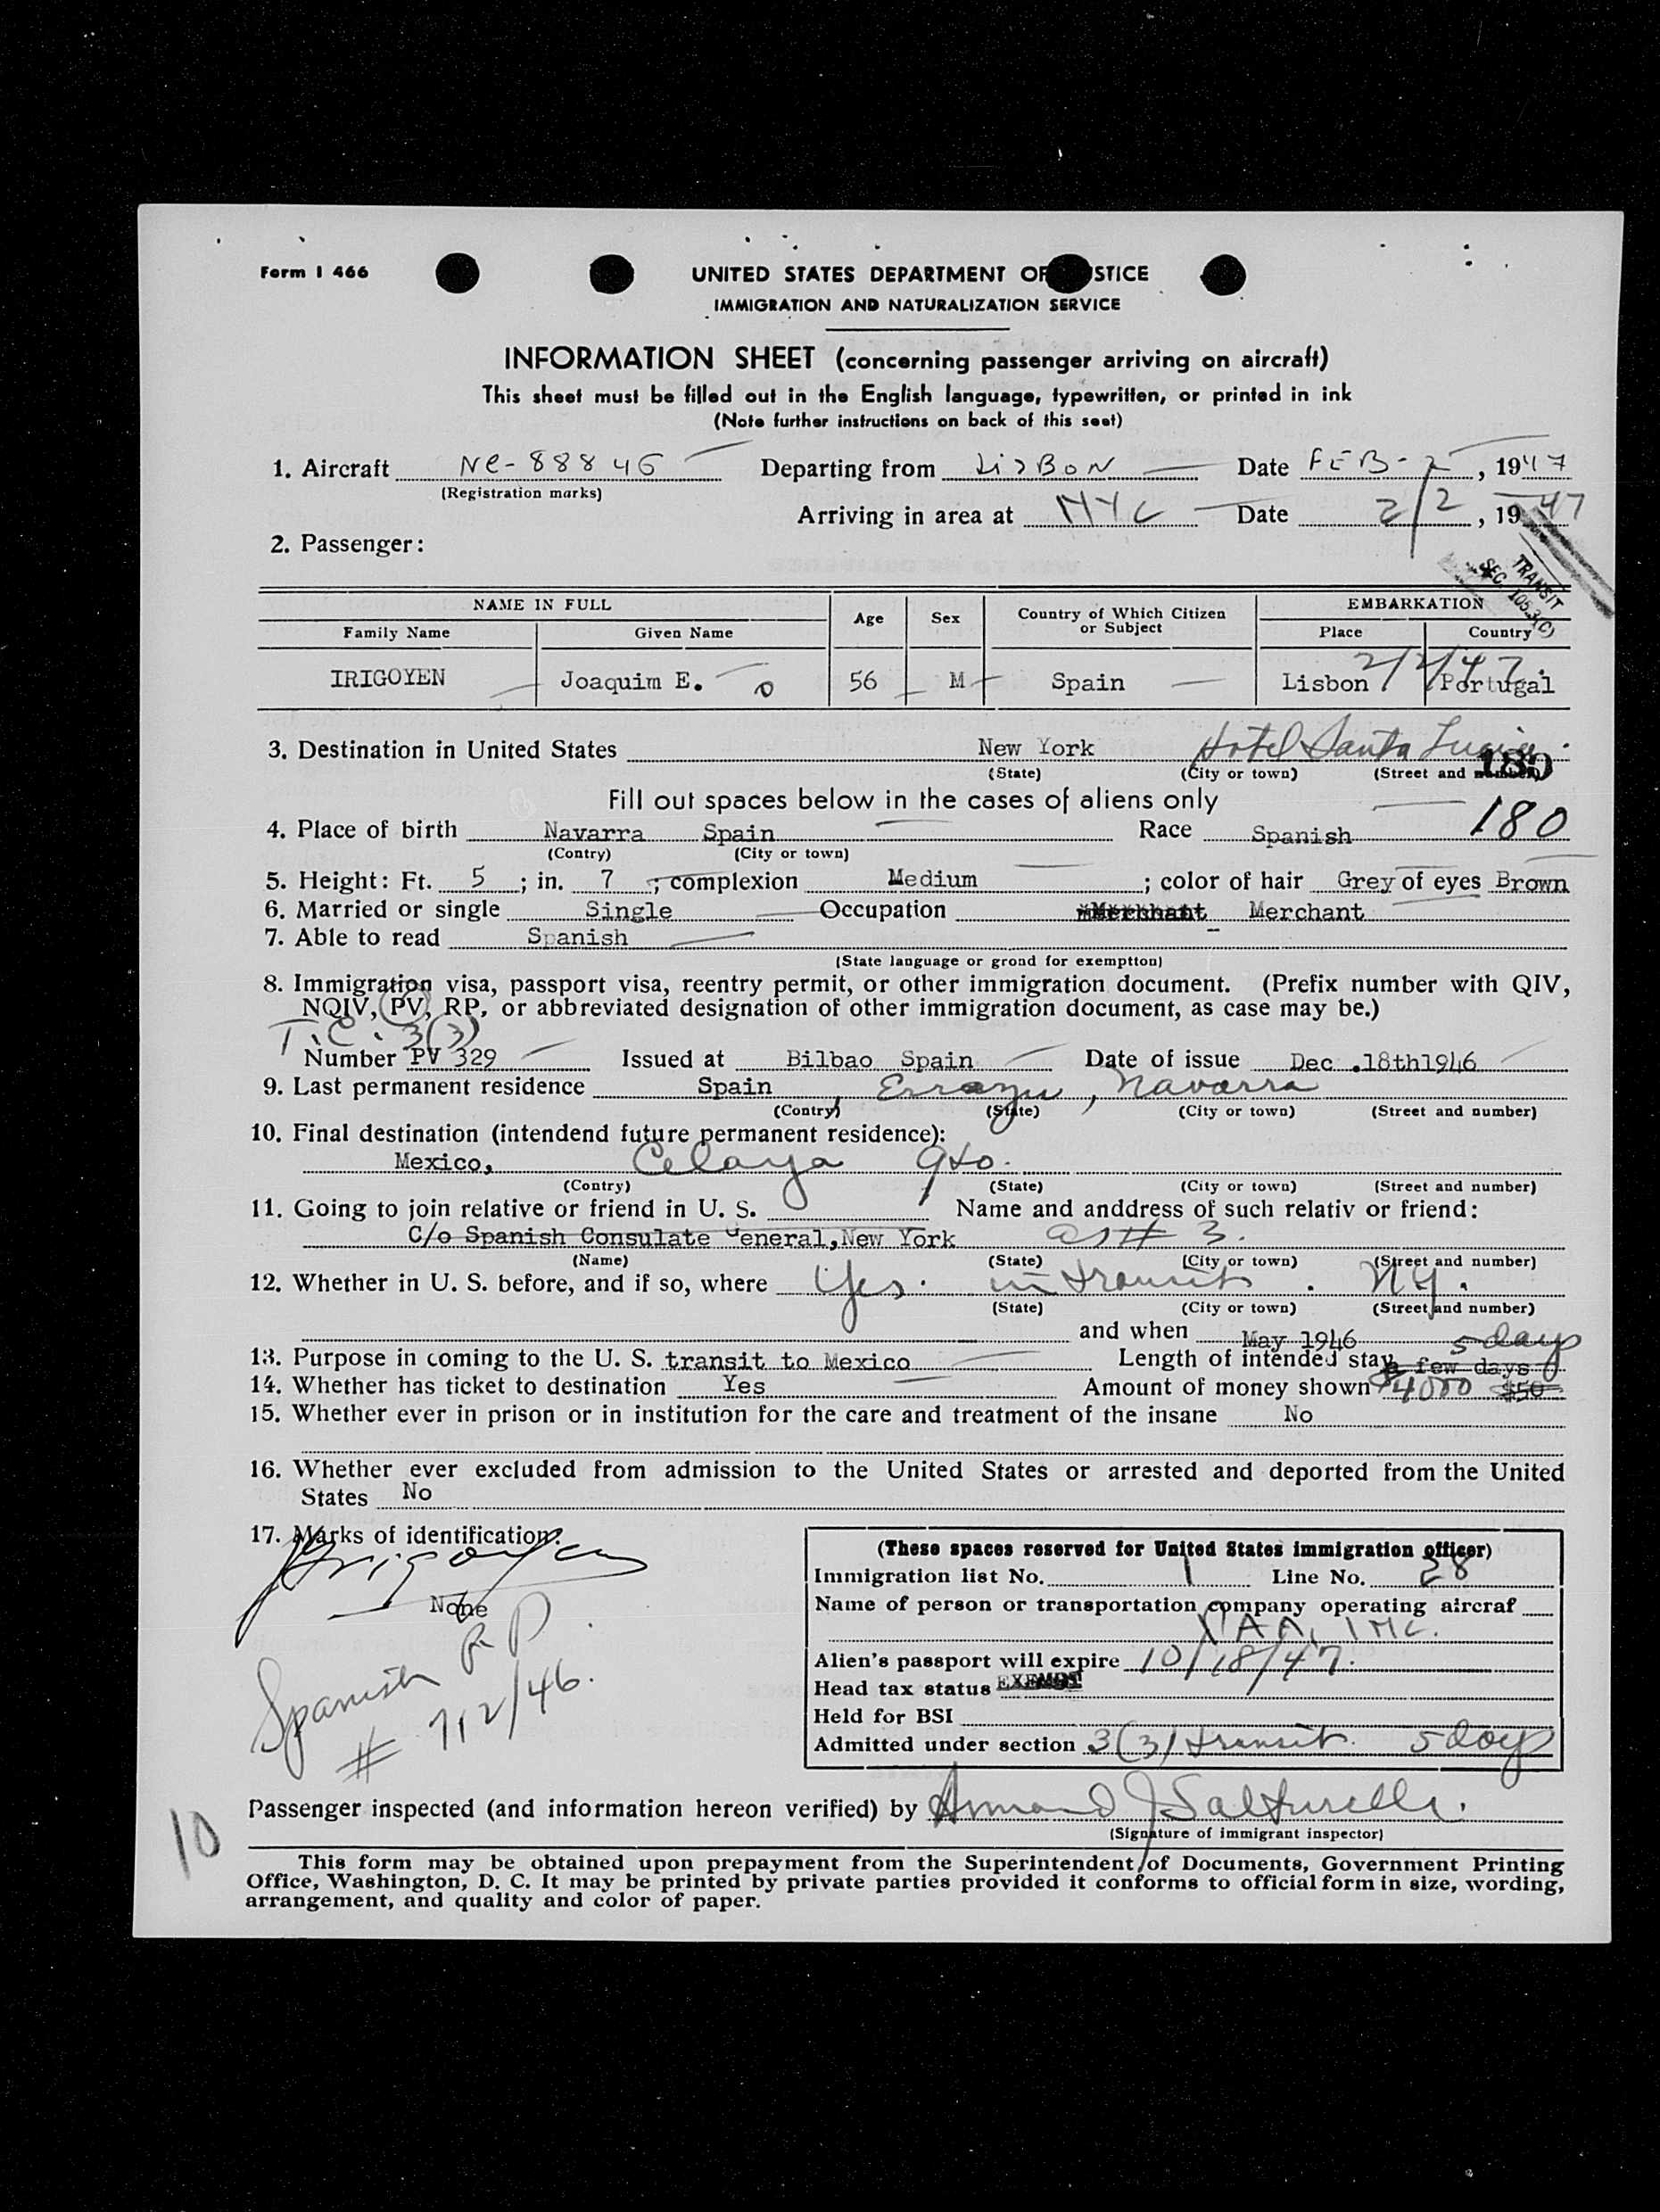 Form I 466
UNITED STATES DEPARTMENT OF STICE
IMMIGRATION AND NATURALIZATION SERVICE
INFORMATION SHEET (concerning passenger arriving on aircraft)
This sheet must be filled out in the English language, typewritten, or printed in ink
(Note further instructions on back of this seet)
1. Aircraft NC-88846 Departing from LISBON Date FEB-2, 1947
(Registration marks)
Arriving in area at NYC Date 2/2, 1947
2. Passenger:
TRANSIT
SEC. 105.3(C)
2/2/47.
NAME IN FULL Age Sex Country of Which Citizen or Subject EMBARKATION
Family Name Given Name Place Country
IRIGOYEN Joaquim E. 56 M Spain Lisbon Portugal
3. Destination in United States New York Hotel Santa Lucia
(State) (City or town) (Street and number)
180
Fill out spaces below in the cases of aliens only
4. Place of birth Navarra Spain Race Spanish 180
(Contry) (City or town)
5. Height: Ft. 5 ; in. 7 ; complexion Medium ; color of hair Grey of eyes Brown
6. Married or single Single Occupation Merchant
7. Able to read Spanish
(State language or grond for exemption)
8. Immigration visa, passport visa, reentry permit, or other immigration document. (Prefix number with QIV,
NQIV, PV, RP, or abbreviated designation of other immigration document, as case may be.)
T.C. 3(3)
Number PV 329 Issued at Bilbao Spain Date of issue Dec .18th1946
9. Last permanent residence Spain, Errazu, Navarra
(Contry) (State) (City or town) (Street and number)
10. Final destination (intendend future permanent residence):
Mexico, Celaya Gto.
(Contry) (State) (City or town) (Street and number)
11. Going to join relative or friend in U. S. Name and anddress of such relativ or friend:
C/o Spanish Consulate General,New York as # 3.
(Name) (State) (City or town) (Street and number)
12. Whether in U. S. before, and if so, where Yes. in transit. NY.
(State) (City or town) (Street and number)
and when May 1946 5 days
13. Purpose in coming to the U. S. transit to Mexico Length of intended stay a few days
14. Whether has ticket to destination Yes Amount of money shown $4000 $50
15. Whether ever in prison or in institution for the care and treatment of the insane No
16. Whether ever excluded from admission to the United States or arrested and deported from the United
States No
17. Marks of identification.
Irigoyen
None
Spanish P.P.
# 712/46.
(These spaces reserved for United States immigration officer)
Immigration list No. 1 Line No. 28
Name of person or transportation company operating aircraf
PAA, INC.
Alien's passport will expire 10/18/47.
Head tax status EXEMPT
Held for BSI
Admitted under section 3(3) transit. 5 days
10
Passenger inspected (and information hereon verified) by Armand J Salturelli.
(Signature of immigrant inspector)
This form may be obtained upon prepayment from the Superintendent of Documents, Government Printing
Office, Washington, D. C. It may be printed by private parties provided it conforms to official form in size, wording,
arrangement, and quality and color of paper.